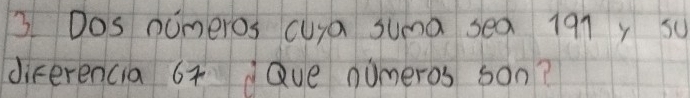 3. Dos números cuya suma sea 191 y su
diferencia 67 ¿Que números son?